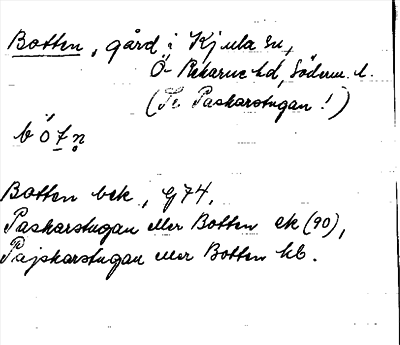 Botten, gård i Kjula sn,
Ö- Rekarne hd, Söderm. l.
(Se Paskarstugan!)
bótn̥
Botten bek, GJ 74,
Paskarstugan eller Botten ek (90),
Pajskarstugan eller Botten hb.